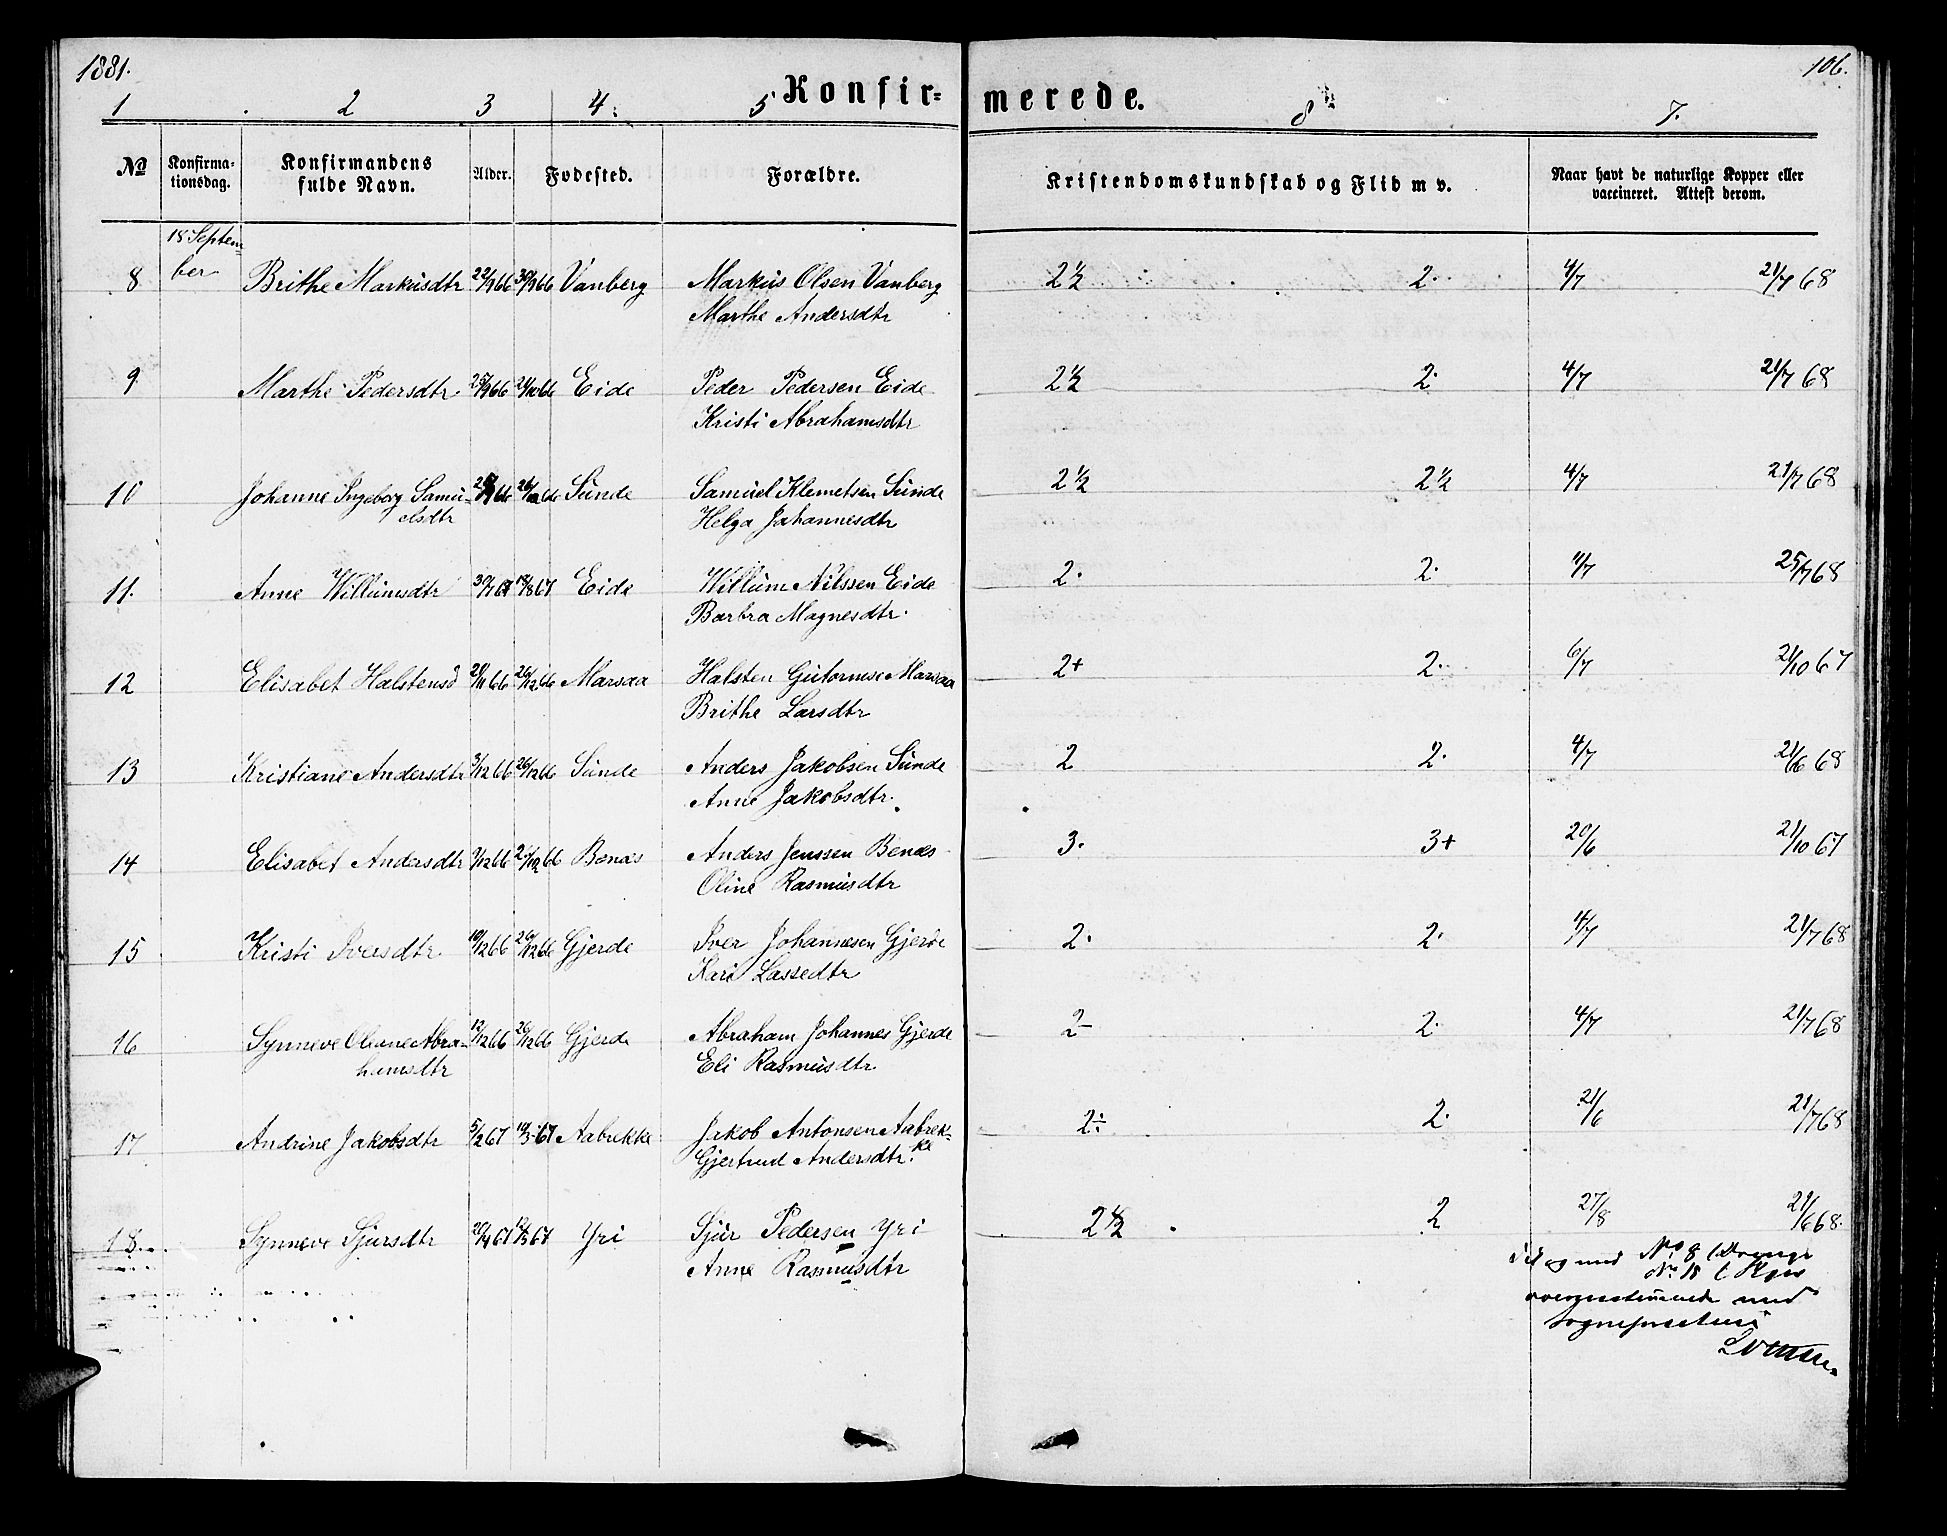 1881.
106.
Konfir=
merede.
1 2 3 4. 5 8 7.
No
Konfirma-
tionsdag.
Konfirmandens
fulde Navn.
Alder.
Fødested.
Forældre.
Kristendomskundskab og Flid m v.
Naar havt de naturlige Kopper eller
vaccineret. Attest derom.
18 Septem=
ber
8 Brithe Markusdtr 22/9 66 30/9 66 Vanberg Markus Olsen Vanberg 2½ 2. 4/7 21/7 68
Marthe Andersdtr
9 Marthe Pedersdtr. 25/9 66 21/10 66 Eide Peder Pedersen Eide 2½ 2. 4/7 21/7 68
Kristi Abrahamsdtr
10 Johanne Ingeborg Samu- 66 66 Sunde Samuel Klemetsen Sunde 2½ 2½ 4/7 21/7 68
elsdtr Helga Johannesdtr
11. Anne Willumsdtr 18/8 67 Eide Willum Nilssen Eide 2. 2. 4/7 25/7 68
Barbra Magnesdtr.
12 Elisabet Halstensd 21/11 66 26/12 66 Marsaa Halsten Gutormse Marsaa 2+ 2. 6/7 21/10 67
Brithe Larsdtr
13 Kristiane Andersdtr 3/12 66 26/12 66 Sunde Anders Jakobsen Sunde 2 2. 4/7 21/6 68
Anne Jakobsdtr.
14 Elisabet Andersdtr 66 66 Benæs Anders Jenssen Benæs 3. 3+ 20/6 21/10 67
Oline Rasmusdtr
15 Kristi Iversdtr 10/12 66 26/12 66 Gjerde Iver Johannesen Gjerde 2. 2. 4/7 21/7 68
Kari Lassedtr
16 Synneve Oleane Abra- 12/12 66 26/12 66 Gjerde Abraham Johannes Gjerde 2- 2. 4/7 21/7 68
hamsdtr Eli Rasmusdtr
17 Andrine Jakobsdtr 5/2 67 67 Aabrekke Jakob Antonsen Aabrek-
ke 2÷ 2. 21/6 21/7 68
Gjertrud Andersdtr.
18. Synneve Sjursdtr 67 67 Yri Sjur Pedersen Yri 2½ 2 27/8 21/6 68.
Anne Rasmusdtr
og med No 8 (Drenge
No 18 (
med